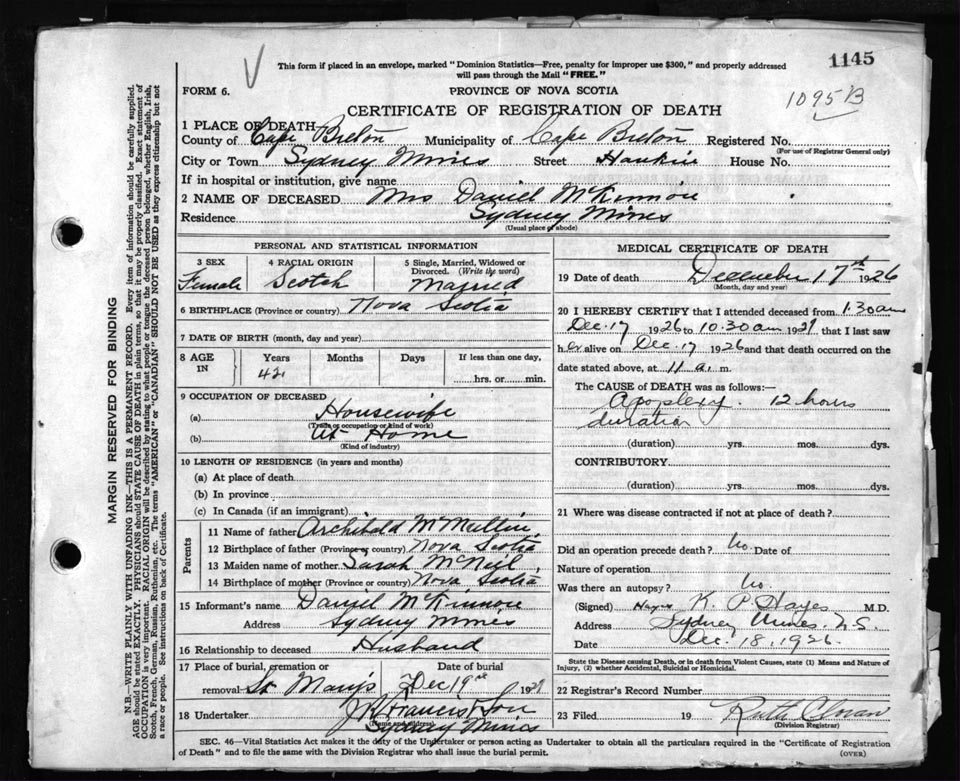 1145
This form if placed in an envelope, marked "Dominion Statistics—Free, penalty for improper use $300," and properly addressed
will pass through the Mail "FREE."
FORM 6.
PROVINCE OF NOVA SCOTIA
1095B
CERTIFICATE OF REGISTRATION OF DEATH
1 PLACE OF DEATH
County of Cape Breton Municipality of Cape Breton Registered No.
(For use of Registrar General only)
City or Town Sydney Mines Street House No.
If in hospital or institution, give name
2 NAME OF DECEASED Mrs Daniel McKinnon
Residence Sydney Mines
(Usual place of abode)
PERSONAL AND STATISTICAL INFORMATION
3 SEX
Female
4 RACIAL ORIGIN
Scotch
5 Single, Married, Widowed or
Divorced. (Write the word)
Married
6 BIRTHPLACE (Province or country) Nova Scotia
7 DATE OF BIRTH (month, day and year)
8 AGE
IN
Years Months Days If less than one day,
42 hrs. or min.
9 OCCUPATION OF DECEASED
(a) Housewife
(Trade or occupation or kind of work)
(b) At Home
(Kind of industry)
10 LENGTH OF RESIDENCE (in years and months)
(a) At place of death
(b) In province
(c) In Canada (if an immigrant)
Parents
11 Name of father Archibald McMullin
12 Birthplace of father (Province or country) Nova Scotia
13 Maiden name of mother Sarah McNeil
14 Birthplace of mother (Province or country) Nova Scotia
15 Informant's name Daniel McKinnon
Address Sydney Mines
16 Relationship to deceased Husband
17 Place of burial, cremation or Date of burial
removal St Marys Dec 19th 192
18 Undertaker J R Francis Son
(Name and address)
Sydney Mines
MEDICAL CERTIFICATE OF DEATH
19 Date of death December 17 1926
(Month, day and year)
20 I HEREBY CERTIFY that I attended deceased from 1.30 am
Dec. 17 1926 to 10.30 am 192 that I last saw
her alive on Dec. 17 1926 and that death occurred on the
date stated above, at 11 a. m.
The CAUSE of DEATH was as follows:—
Apoplexy. 12 hours
duration
(duration) yrs. mos. dys.
CONTRIBUTORY
(duration) yrs. mos. dys.
21 Where was disease contracted if not at place of death?
Did an operation precede death? No. Date of
Nature of operation
Was there an autopsy? No.
(Signed) K. P. Hayes M.D.
Address Sydney Mines. N.S.
Date Dec. 18, 1926.
State the Disease causing Death, or in death from Violent Causes, state (1) Means and Nature of
Injury, (2) whether Accidental, Suicidal or Homicidal.
22 Registrar's Record Number
23 Filed 19 Ruth
(Division Registrar)
SEC. 46—Vital Statistics Act makes it the duty of the Undertaker or person acting as Undertaker to obtain all the particulars required in the "Certificate of Registration
of Death" and to file the same with the Division Registrar who shall issue the burial permit.
(OVER)
MARGIN RESERVED FOR BINDING
N.B.—WRITE PLAINLY WITH UNFADING INK—THIS IS A PERMANENT RECORD. Every item of information should be carefully supplied.
AGE should be stated EXACTLY. PHYSICIANS should STATE CAUSE OF DEATH in plain terms, so that it may be properly classified. Exact statement of
OCCUPATION is very important. RACIAL ORIGIN will be described by stating to what people or tongue the deceased person belonged, whether English, Irish,
Scotch, French, German, Russian, Ruthenian, etc. The terms "AMERICAN" or "CANADIAN" SHOULD NOT BE USED as they express citizenship but not
a race or people. See instructions on back of Certificate.